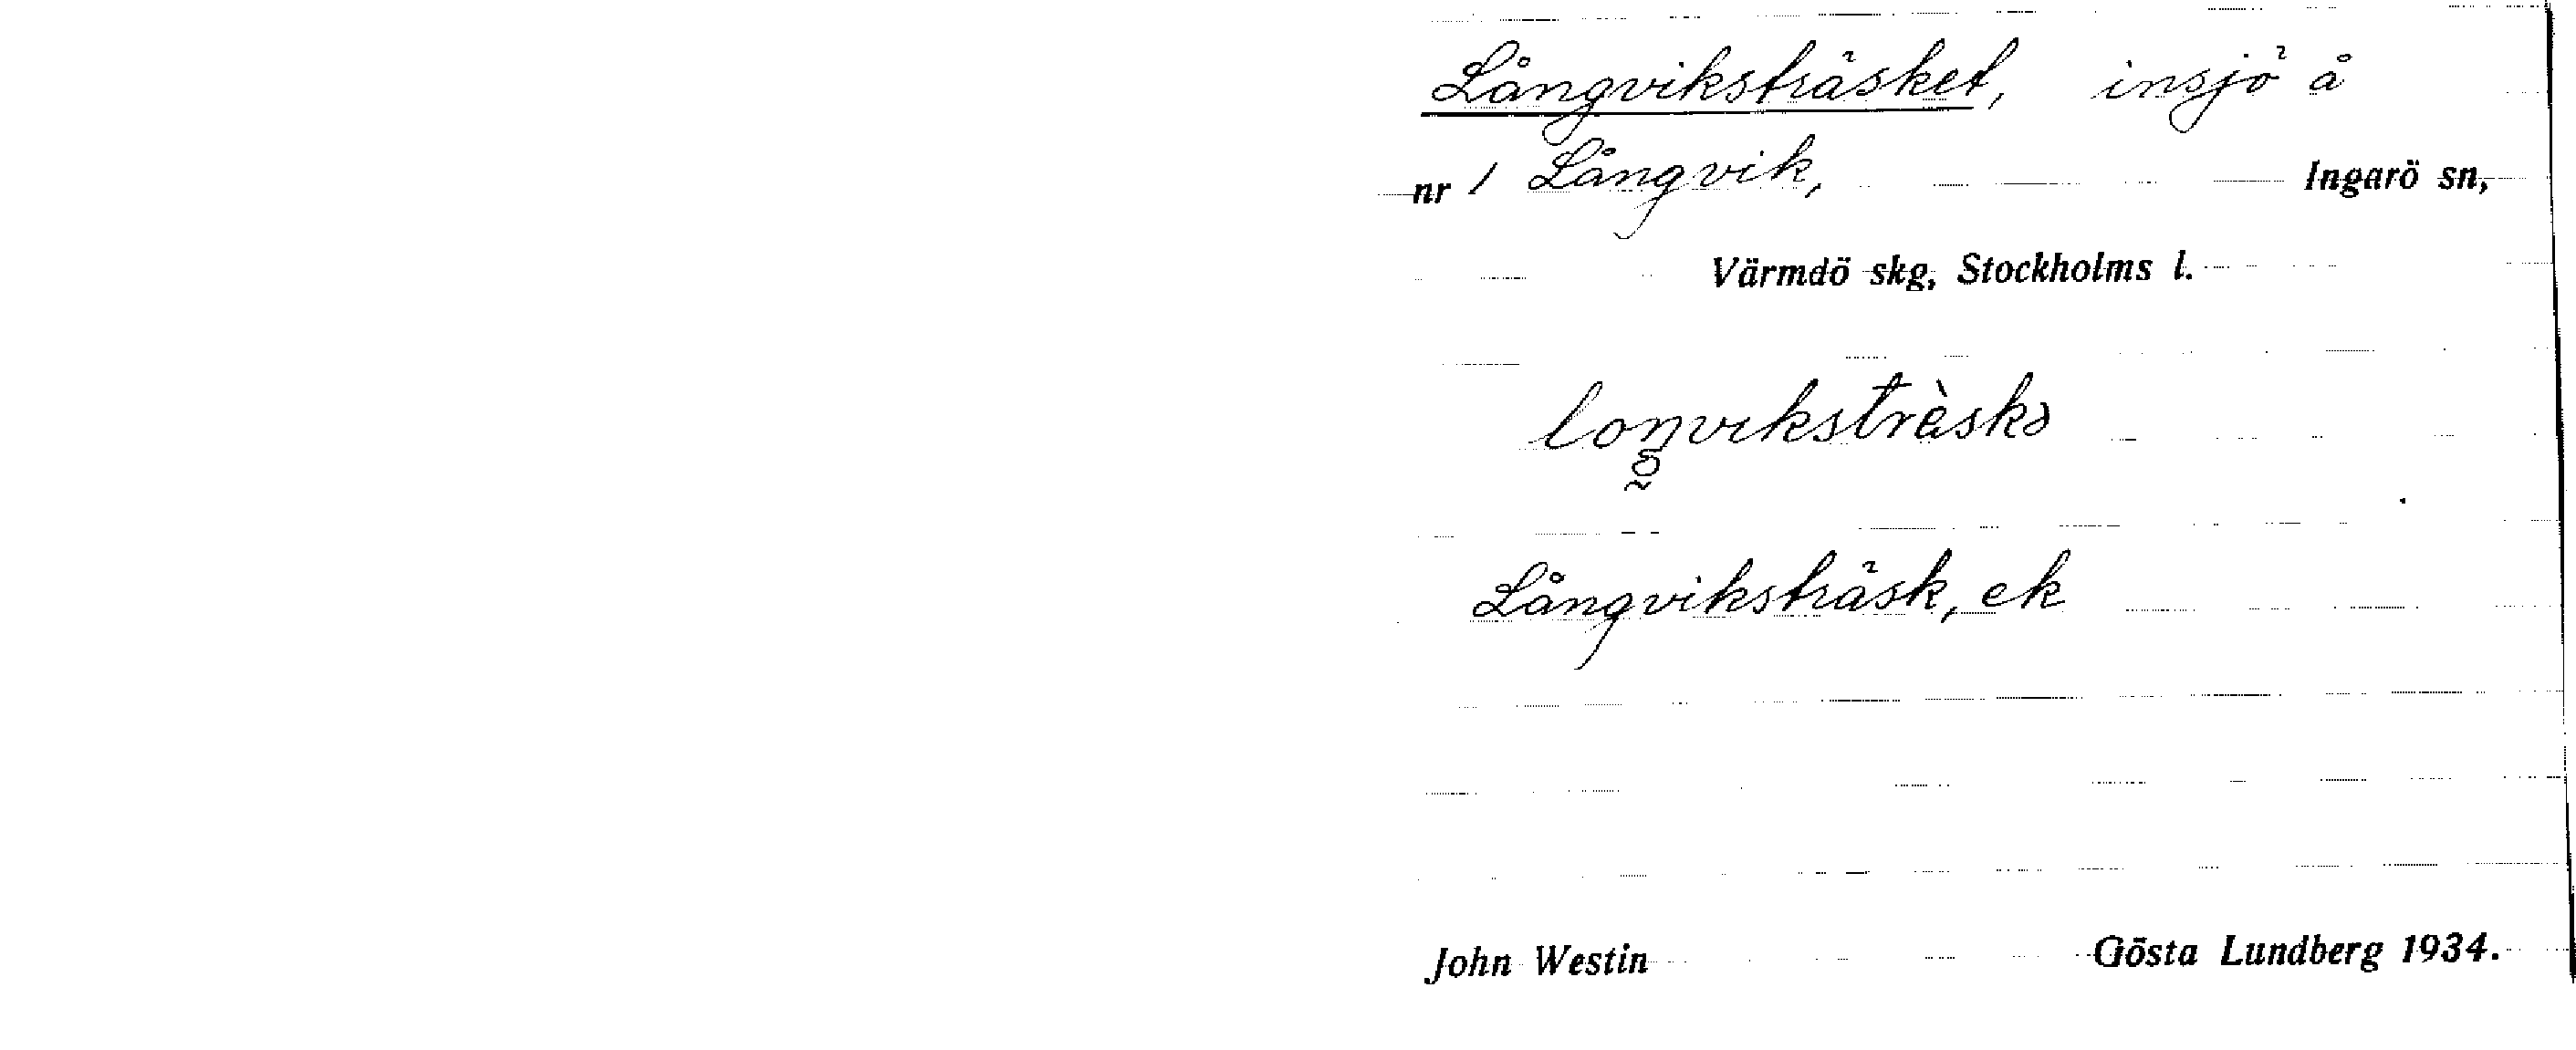 Långviksträsket, insjö å
nr 1 Långvik, Ingarö sn,
Värmdö skg, Stockholms l.
loŋviksträ̀skə
Långviksträsk, ek
John Westin Gösta Lundberg 1934.